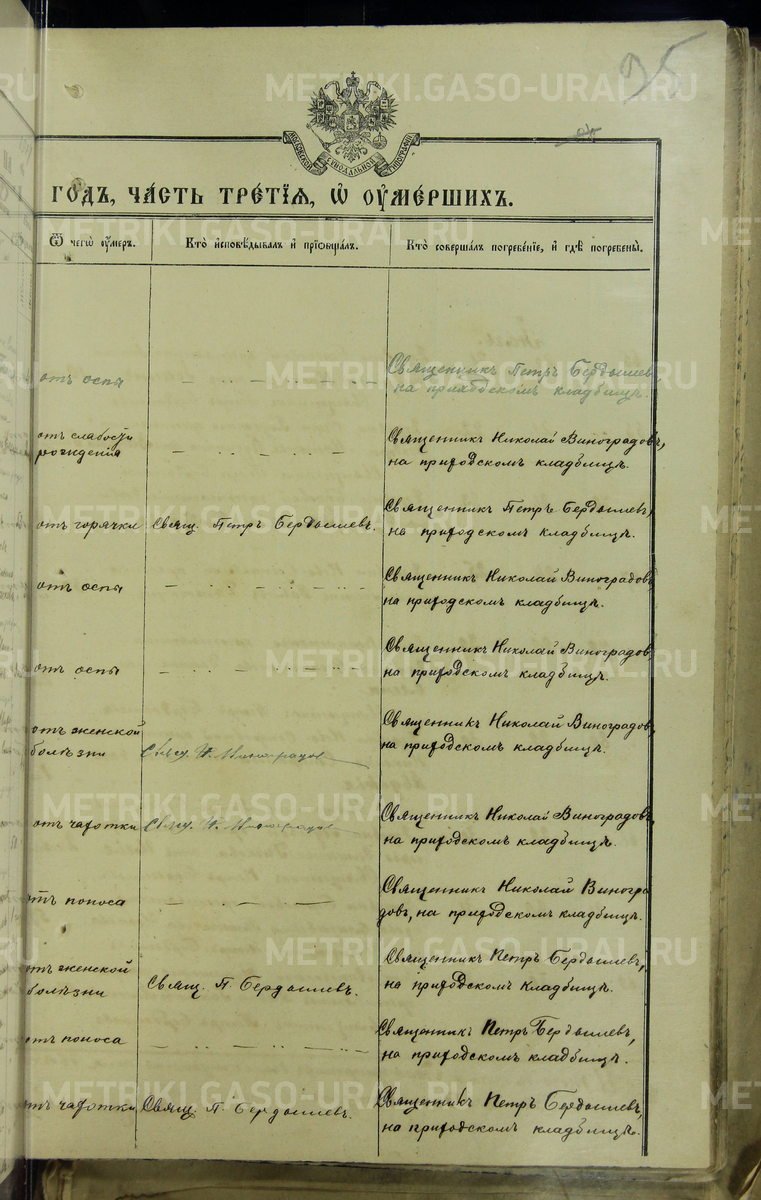 95
МОСКОВСКОЙ СѴНОДАЛЬНОЙ ТИПОГРАФІИ
ГОДЪ, ЧА́СТЬ ТРЕ́ТІѦ, Ѡ҆ ОУ҆МЕ́РШИХЪ.
Ѿ чегѡ̀ оу҆́меръ.
Кто̀ и҆сповѣ́дывалъ и҆ прїѡбща́лъ.
Кто̀ соверша́лъ погребе́нїе, и҆ гдѣ̀ погребены̀.
отъ оспы
Священникъ Петръ Бердышевъ
на приходскомъ кладбищѣ.
отъ слабости
рожденія
Священникъ Николай Виноградовъ,
на приходскомъ кладбищѣ.
отъ горячки
Свящ. Петръ Бердышевъ.
Священникъ Петръ Бердышевъ,
на приходскомъ кладбищѣ.
отъ оспы
Священникъ Николай Виноградовъ
на приходскомъ кладбищѣ.
отъ оспы
Священникъ Николай Виноградов,
на приходскомъ кладбищѣ.
отъ женской
болѣзни
Свящ. Н. Виноградов
Священникъ Николай Виноградов,
на приходскомъ кладбищѣ.
отъ чахотки
Свящ. Н. Виноградов
Священникъ Николай Виноградовъ,
на приходскомъ кладбищѣ.
отъ поноса
Священникъ Николай Виногра
довъ, на приходскомъ кладбищѣ.
отъ женской
болѣзни
Свящ. П. Бердышевъ.
Священникъ Петръ Бердышевъ,
на приходскомъ кладбищѣ.
отъ поноса
Священникъ Петръ Бердышевъ,
на приходскомъ кладбищѣ.
отъ чахотки
Свящ. П. Бердышевъ.
Священникъ Петръ Бердышевъ,
на приходскомъ кладбищѣ.
METRIKI.GASO-URAL.RU